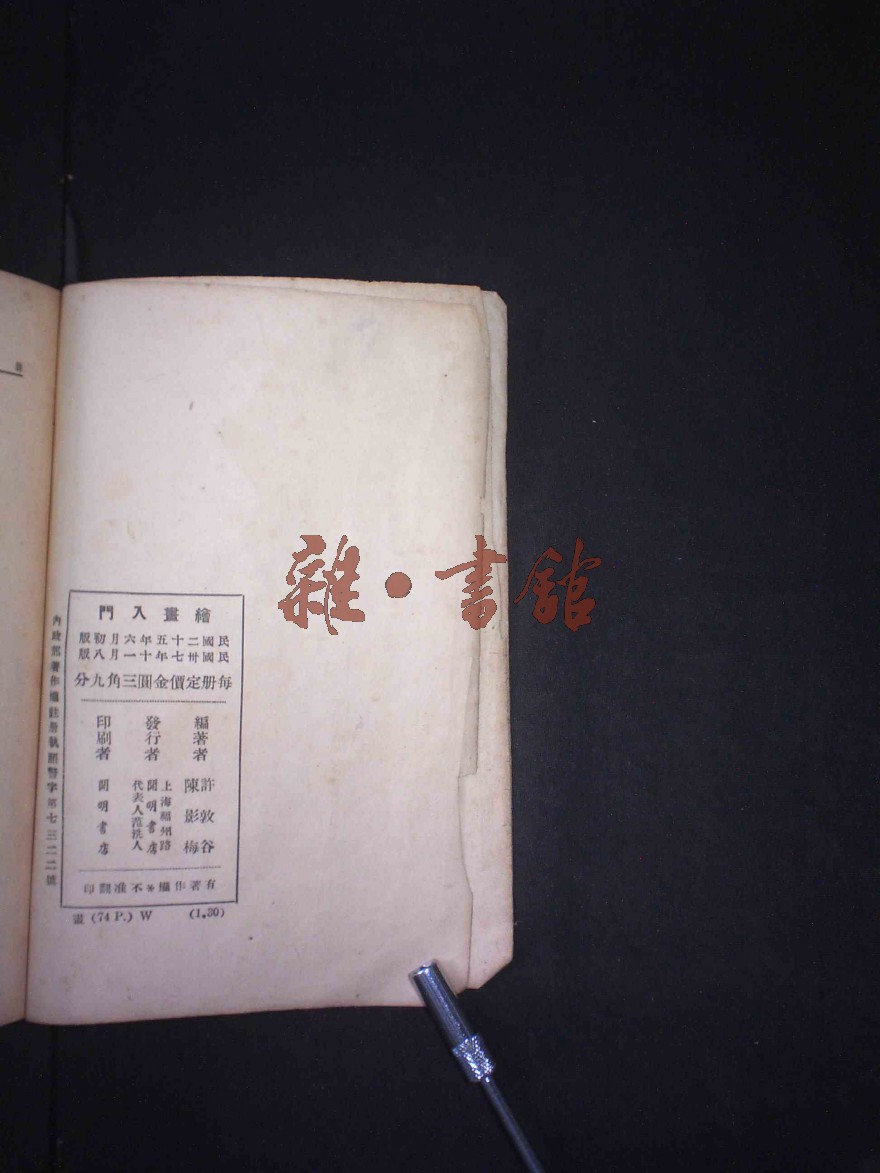 繪畫入門
民國二十五年六月初版
民國卅七年十一月八版
每册定價金圓三角九分
編著者
許敦谷
陳影梅
發行者
上海福州路
開明書店
代表人范洗人
印刷者
開明書店
有著作權不准翻印
內政部著作權註册執照警字第七三二二號
畫 (74 P.) W (1.30)
雜·書館